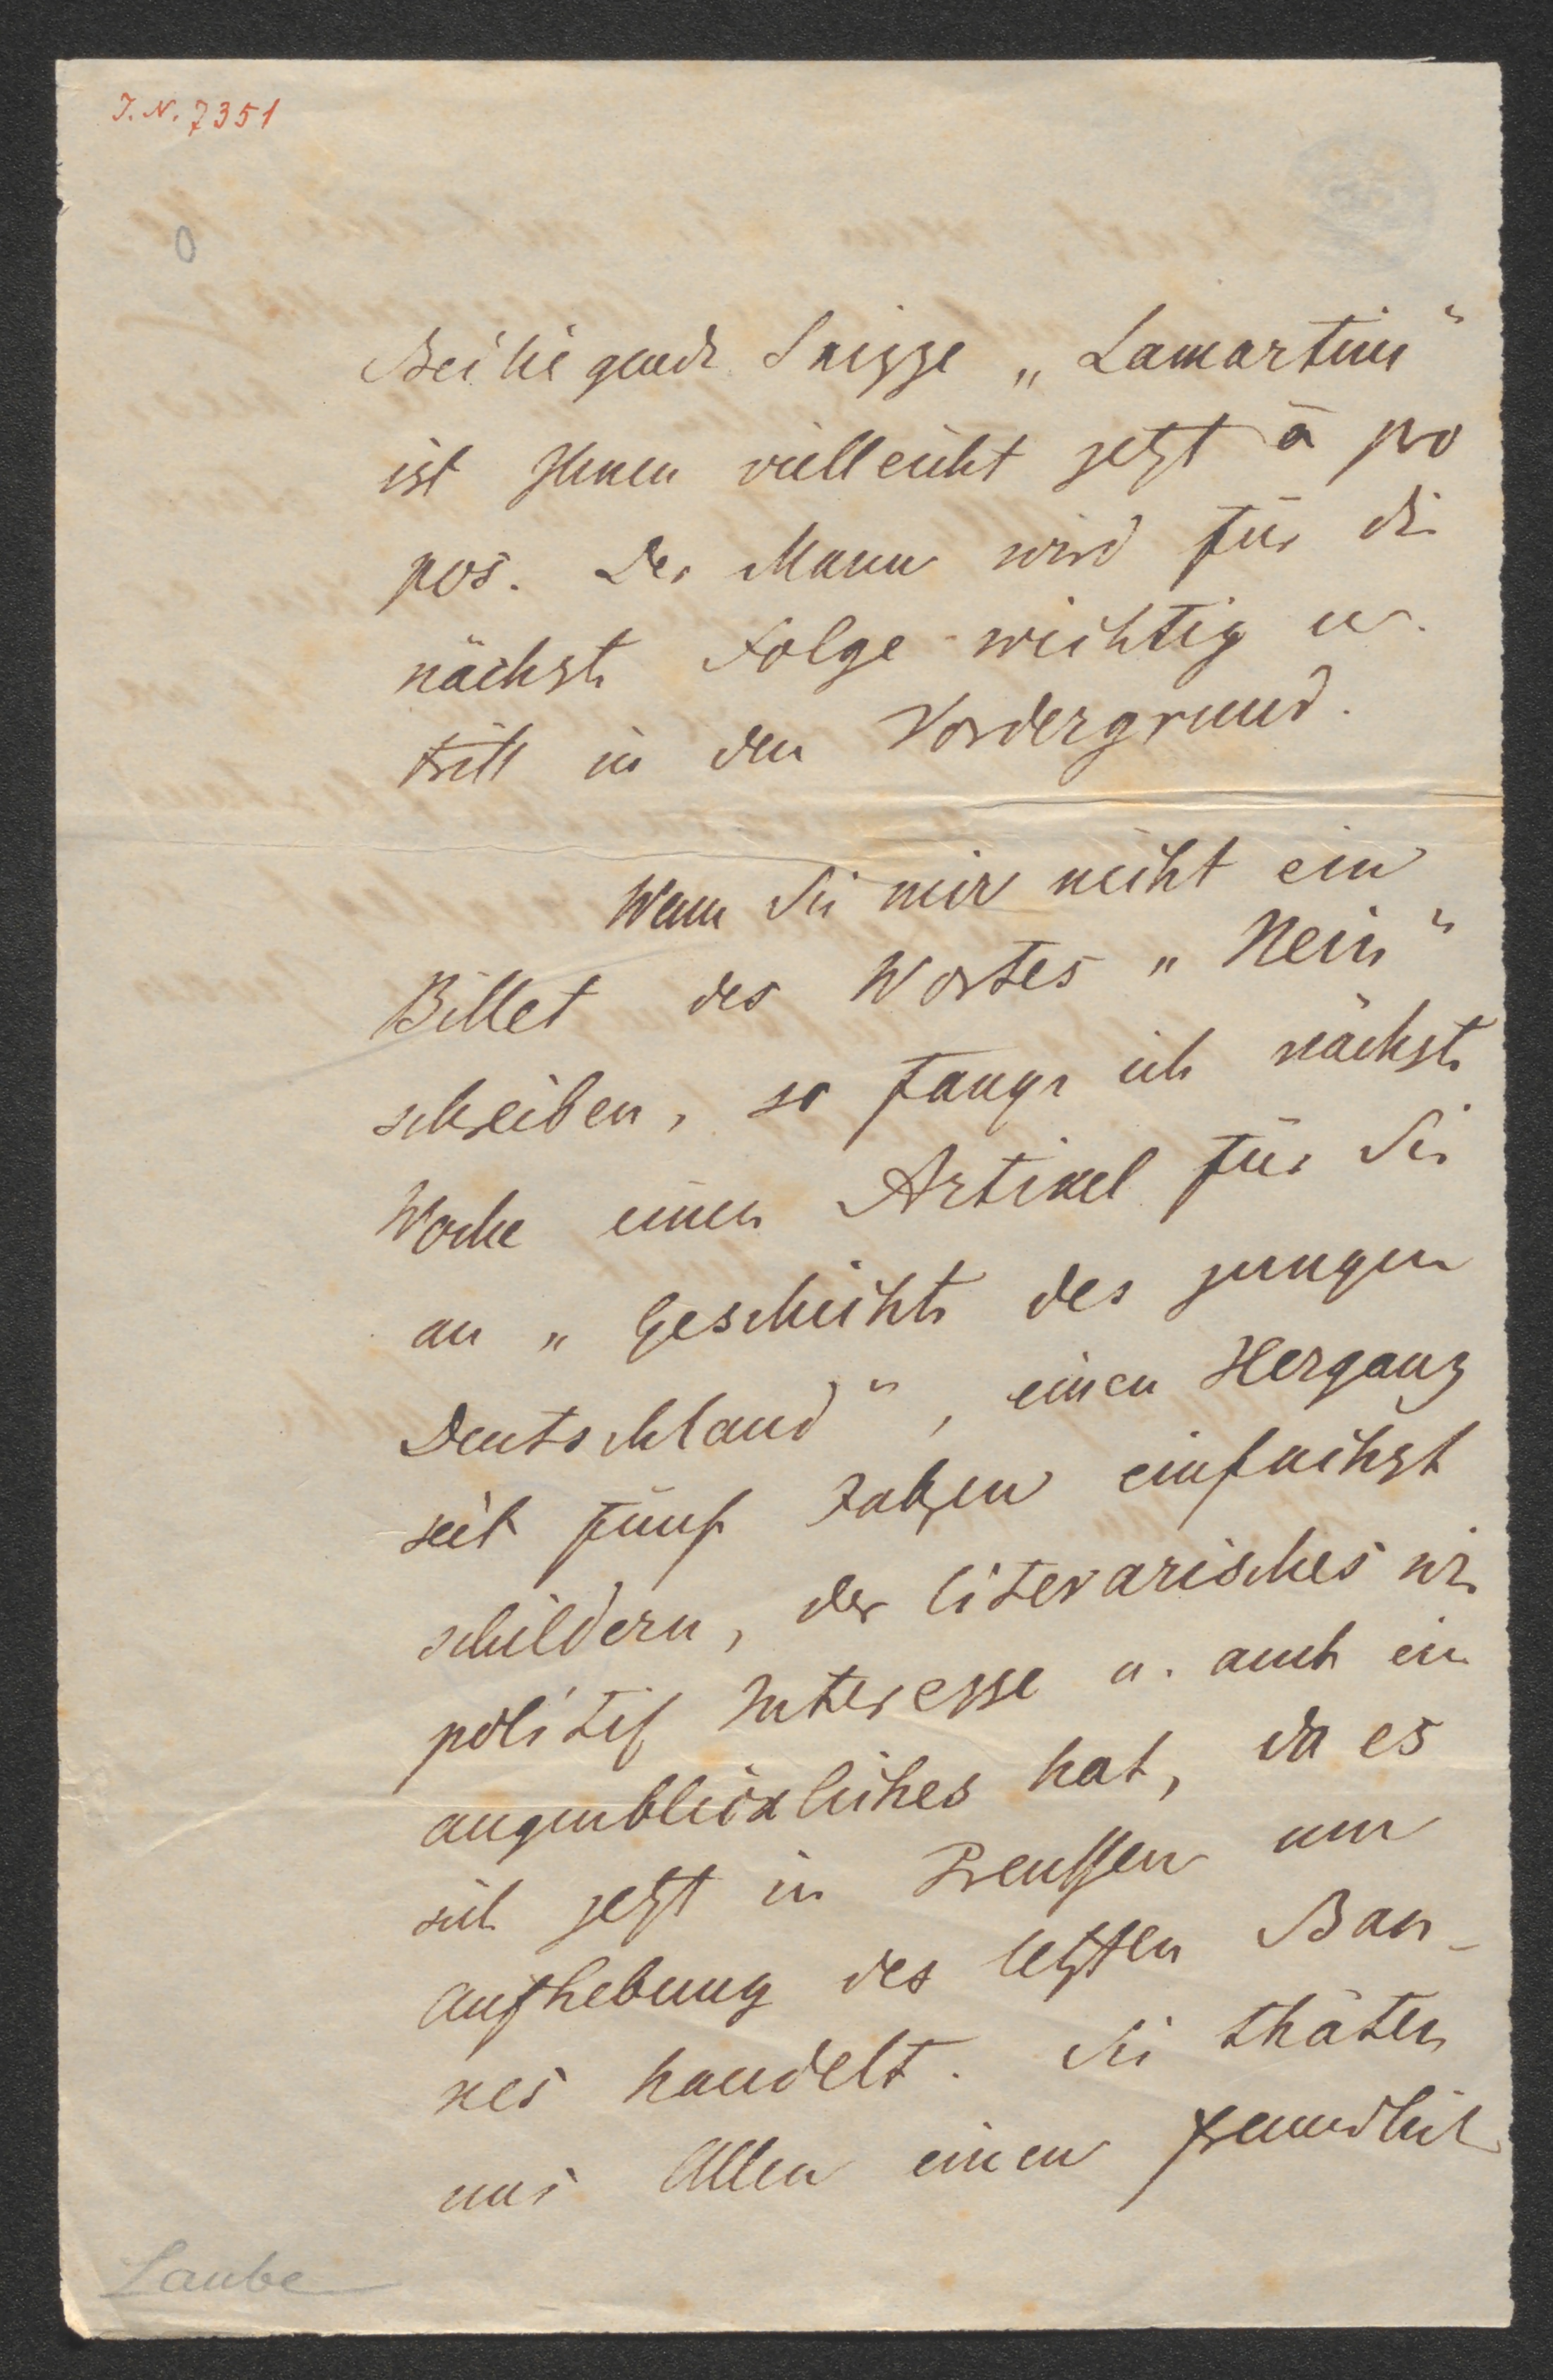 J. N. 7351
0
Beiliegende Skizze „Lamartine"
ist Ihnen vielleicht jetzt à pro
pos. Der Mann wird für die
nächste Folge wichtig u.
tritt in den Vordergrund.
Wenn Sie mir nicht ein
Billet des Wortes „Nein"
schreiben, so fange ich nächste
Woche einen Artikel für Sie
an „Geschichte des jungen
Deutschland", einen Hergang
seit fünf Jahren einfachst
schildern, der literarisches wie
politisch Interesse u. auch ein
augenblickliches hat, da es
sich jetzt in Preussen um
Aufhebung des letzten Ban-
nes handelt. Sie thäten
uns Allen einen freundlich
Laube